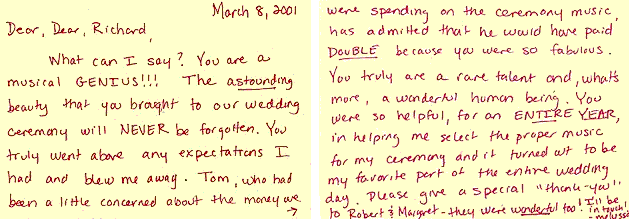 March 8, 2001
Dear, Dear, Richard,
What can I say? You are a
musical GENIUS!!! The astounding
beauty that you brought to our wedding
ceremony will NEVER be forgotten. You
truly went above any expectations I
had and blew me away. Tom, who had
been a little concerned about the money we
→
were spending on the ceremony music,
has admitted that he would have paid
DOUBLE because you were so fabulous.
You truly are a rare talent and, what's
more, a wonderful human being. You
were so helpful, for an ENTIRE YEAR,
in helping me select the proper music
for my ceremony and it turned out to be
my favorite part of the entire wedding
day. Please give a special "thank-you"
to Robert & Margret - they were wonderful too! I'll be
in touch!